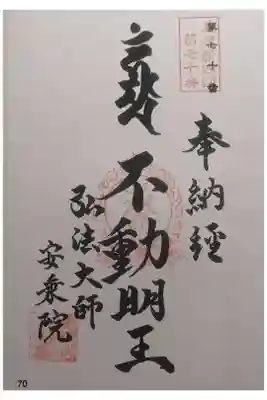 第七十番
奉納經
不動明王
弘法大師
安乗院
70